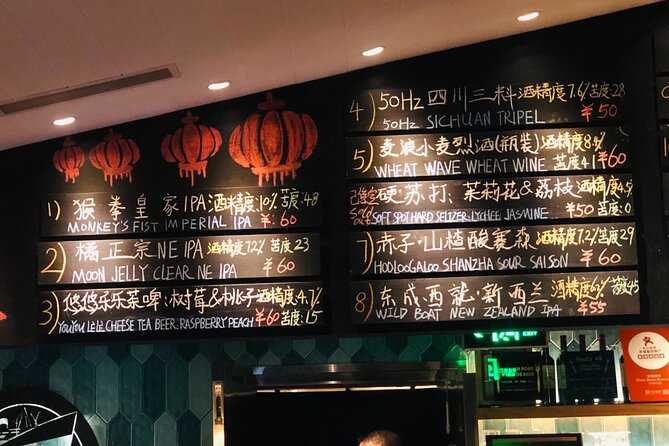 1) 猴拳皇家IPA 酒精度:10% 苦度:48
MONKEY'S FIST IMPERIAL IPA ¥60
2) 橘正宗NE IPA 酒精度7.2% 苦度23
MOON JELLY CLEAR NE IPA ¥60
3) 悠悠乐乐茶啤:树莓&桃子 酒精度:4.7%
YouYou LeLe CHEESE TEA BEER: RASPBERRY PEACH ¥60 苦度:15
4) 50Hz 四川三料 酒精度7.6% 苦度:28
50Hz SICHUAN TRIPEL ¥50
5) 麦浪小麦烈酒(瓶装) 酒精度8%
WHEAT WAVE WHEAT WINE 苦度41 ¥60
硬苏打:茉莉花&荔枝 酒精度4.5%
SOFT SPOT HARD SELTZER: LYCHEE JASMINE ¥50 苦度:0
7) 赤子·山楂酸赛森 酒精度7.2% 苦度29
HOOLOOGALOO SHANZHA SOUR SAISON ¥60
8) 东成西就·新西兰 酒精度6% 苦度45
WILD BOAT NEW ZEALAND IPA ¥55